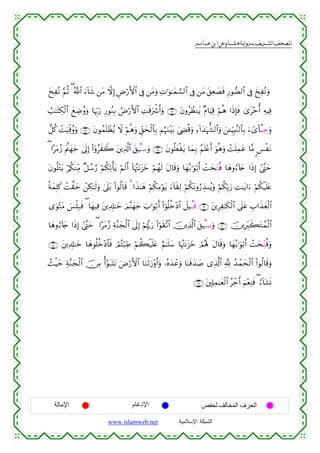 المصحف الشريف برواية هشام عن ابن عامر
وَنُفِخَ فِي ٱلصُّورِ فَصَعِقَ مَن فِي ٱلسَّمَٰوَٰتِ وَمَن فِي ٱلْأَرْضِ إِلَّا مَن شَآءَ ٱللَّهُ ۖ ثُمَّ نُفِخَ
فِيهِ أُخْرَىٰ فَإِذَا هُمْ قِيَامٌ يَنظُرُونَ وَأَشْرَقَتِ ٱلْأَرْضُ بِنُورِ رَبِّهَا وَوُضِعَ ٱلْكِتَٰبُ
وَجِاْىٓءَ بِٱلنَّبِيِّـۧنَ وَٱلشُّهَدَآءِ وَقُضِيَ بَيْنَهُم بِٱلْحَقِّ وَهُمْ لَا يُظْلَمُونَ وَوُفِّيَتْ كُلُّ
نَفْسٍ مَّا عَمِلَتْ وَهُوَ أَعْلَمُ بِمَا يَفْعَلُونَ وَسِيقَ ٱلَّذِينَ كَفَرُوٓا۟ إِلَىٰ جَهَنَّمَ زُمَرًا ۖ
حَتَّىٰٓ إِذَا جَآءُوهَا فُتِّحَتْ أَبْوَٰبُهَا وَقَالَ لَهُمْ خَزَنَتُهَآ أَلَمْ يَأْتِكُمْ رُسُلٌ مِّنكُمْ يَتْلُونَ
عَلَيْكُمْ ءَايَٰتِ رَبِّكُمْ وَيُنذِرُونَكُمْ لِقَآءَ يَوْمِكُمْ هَٰذَا ۚ قَالُوا۟ بَلَىٰ وَلَٰكِنْ حَقَّتْ كَلِمَةُ
ٱلْعَذَابِ عَلَى ٱلْكَٰفِرِينَ قِيلَ ٱدْخُلُوٓا۟ أَبْوَٰبَ جَهَنَّمَ خَٰلِدِينَ فِيهَا ۖ فَبِئْسَ مَثْوَى
ٱلْمُتَكَبِّرِينَ وَسِيقَ ٱلَّذِينَ ٱتَّقَوْا۟ رَبَّهُمْ إِلَى ٱلْجَنَّةِ زُمَرًا ۖ حَتَّىٰٓ إِذَا جَآءُوهَا
وَفُتِّحَتْ أَبْوَٰبُهَا وَقَالَ لَهُمْ خَزَنَتُهَا سَلَٰمٌ عَلَيْكُمْ طِبْتُمْ فَٱدْخُلُوهَا خَٰلِدِينَ
وَقَالُوا۟ ٱلْحَمْدُ لِلَّهِ ٱلَّذِي صَدَقَنَا وَعْدَهُۥ وَأَوْرَثَنَا ٱلْأَرْضَ نَتَبَوَّأُ مِنَ ٱلْجَنَّةِ حَيْثُ
نَشَآءُ ۖ فَنِعْمَ أَجْرُ ٱلْعَٰمِلِينَ
الحرف المخالف لحفص الإدغام الإمالة
الشبكة الإسلامية www.islamweb.net